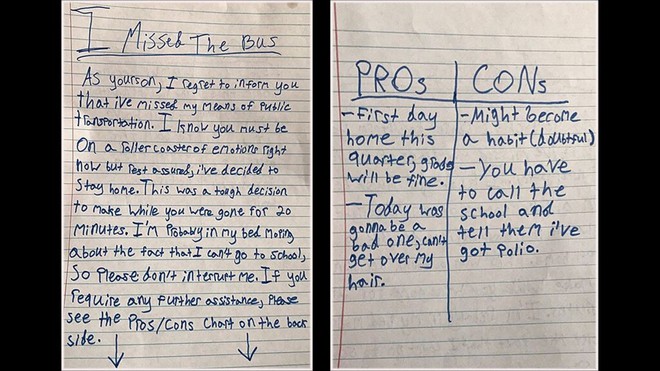 I Missed The Bus
As yourson, I regret to inform you
that ive missed my means of Public
transportation. I know you must be
on a roller coaster of emotions right
now but rest assured, i've decided to
Stay home. This was a tough decision
to make while you were gone for 20
minutes. I'm Probably in my bed moping
about the fact that I can't go to school,
So Please don't interrupt me. If you
require any further assistance, Please
see the Pros/Cons Chart on the back
side.
PROs
-First day
home this
quarter, grades
will be fine.
-Today was
gonna be a
bad one, can't
get over my
hair.
CONs
-Might become
a habit (doubtful)
-You have
to call the
school and
tell them i've
got Polio.